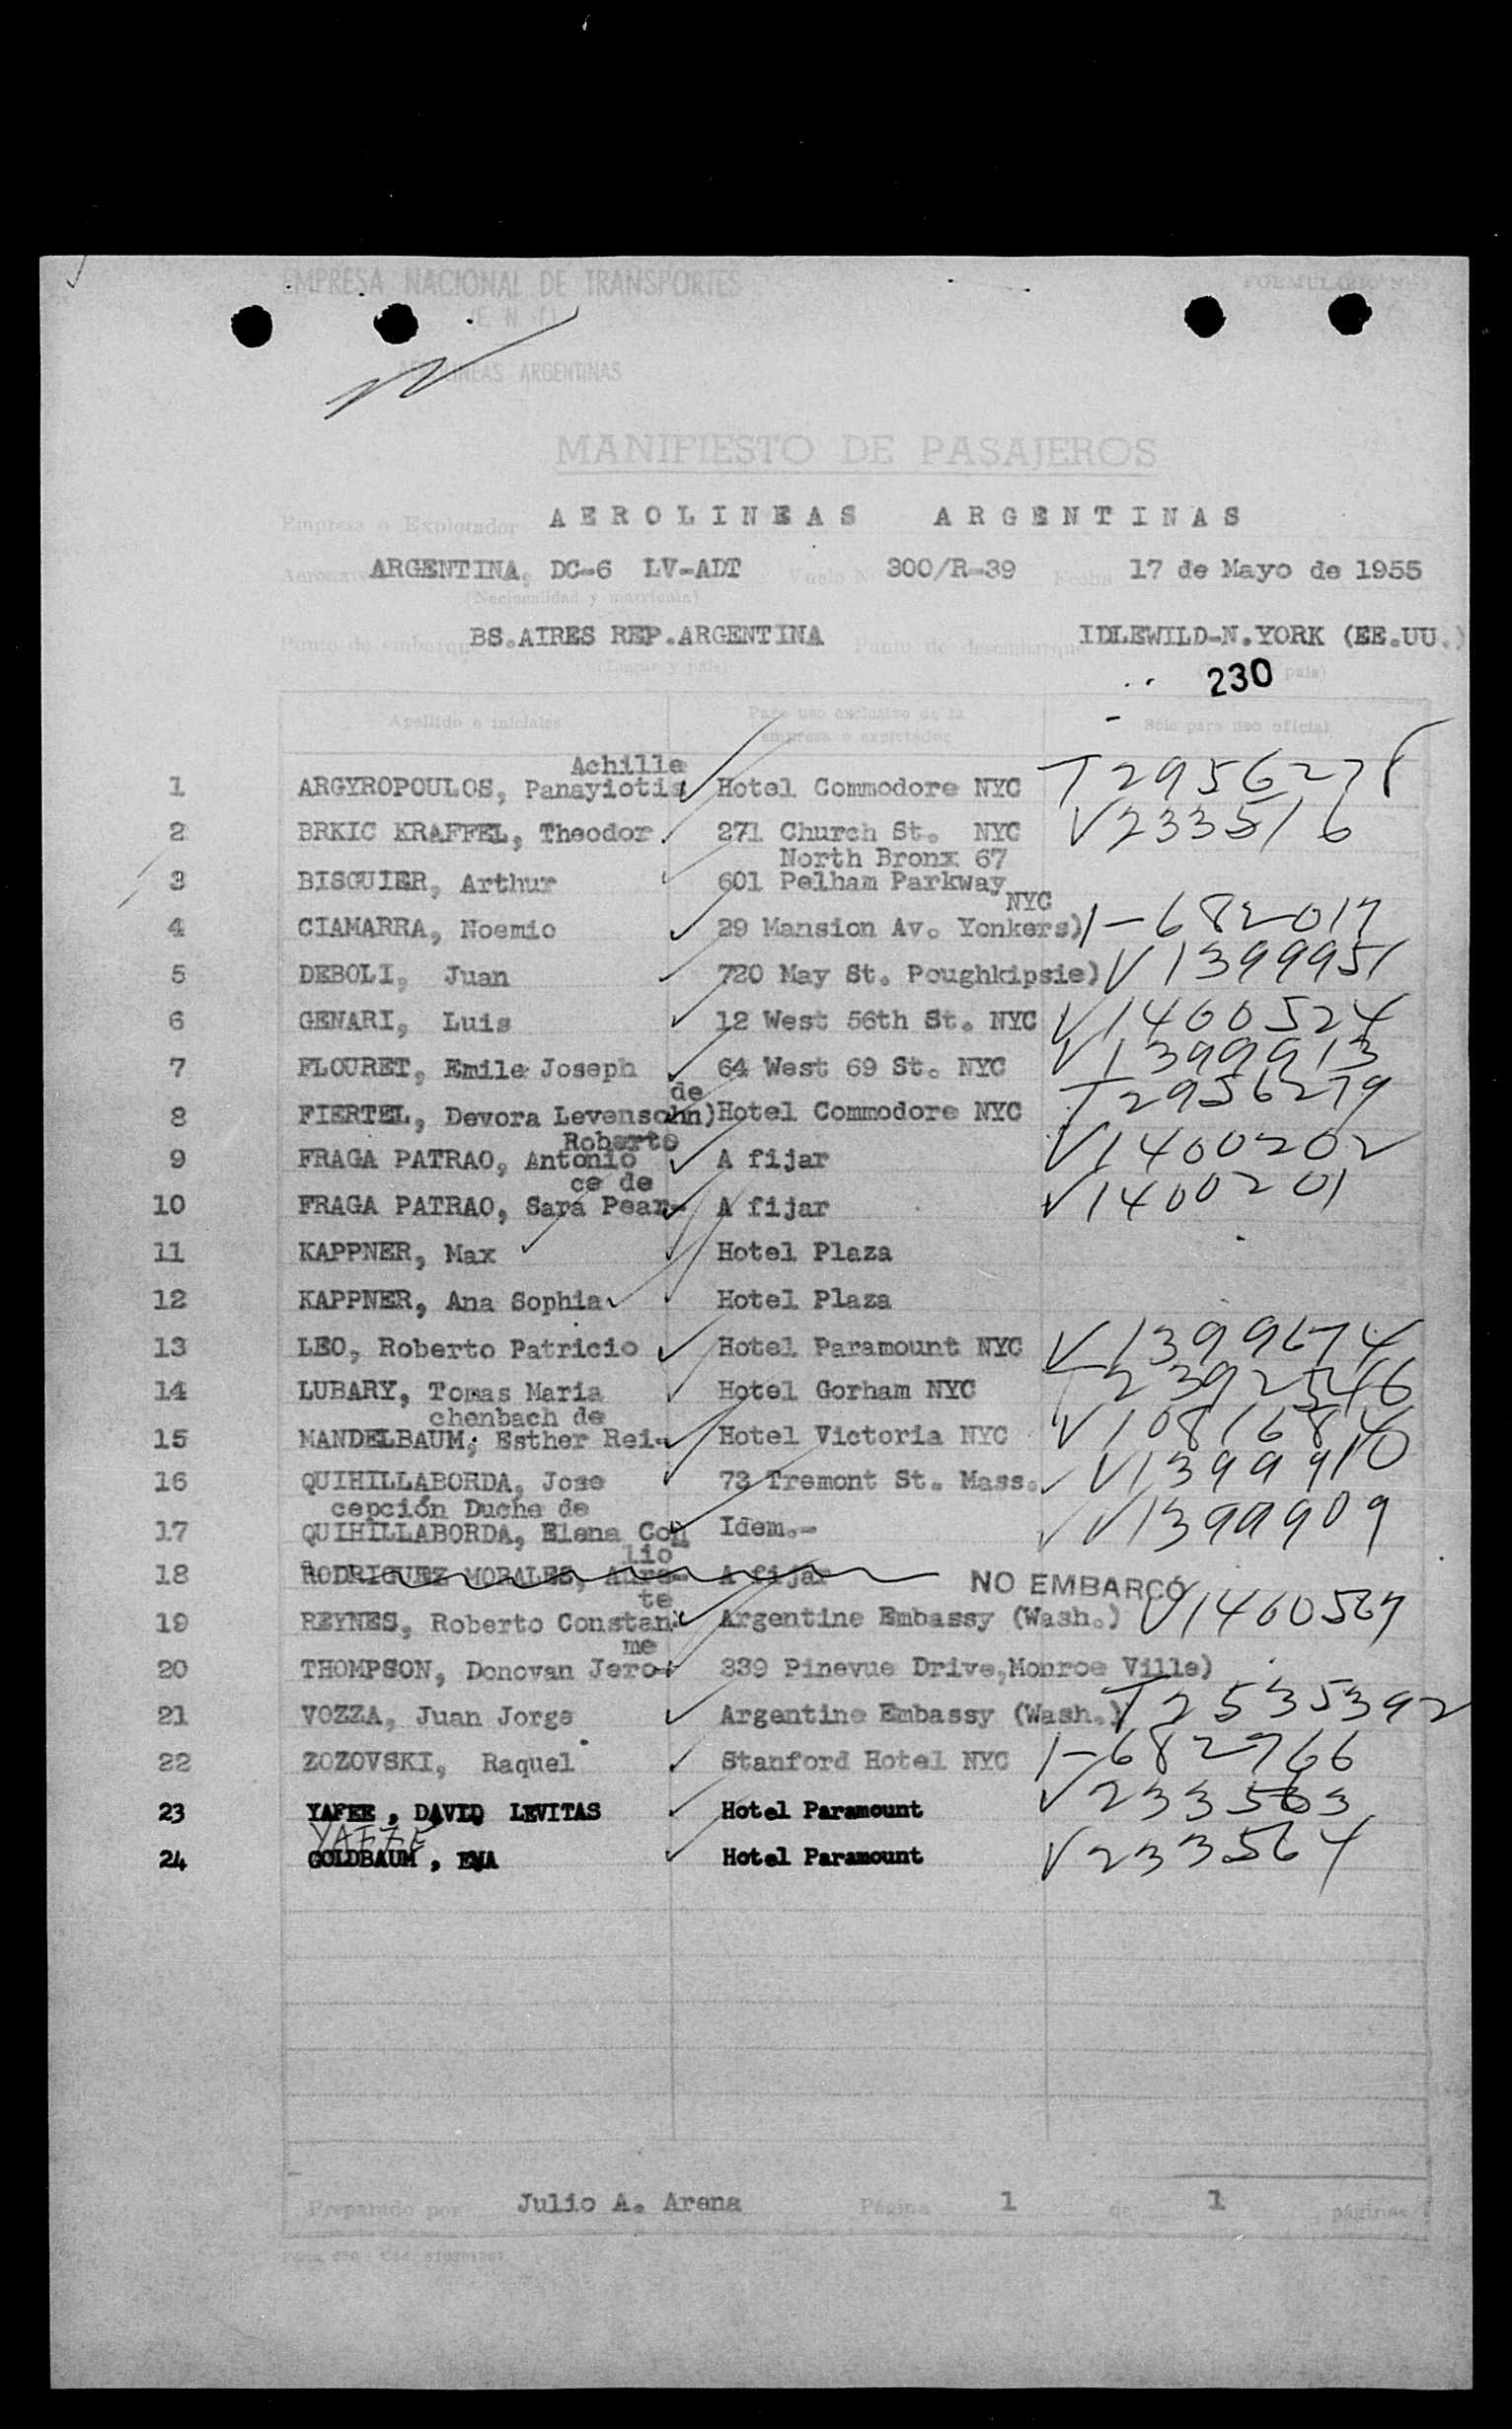 EMPRESA NACIONAL DE TRANSPORTES
AEROLINEAS ARGENTINAS
MANIFIESTO DE PASAJEROS
Empresa o Explotador AEROLINEAS ARGENTINAS
ARGENTINA, DC-6 LV-ADT Vuelo N 300/R-39 Fecha 17 de Mayo de 1955
(Nacionalidad y matrícula)
Punto de embarque BS.AIRES REP.ARGENTINA Punto de desembarque IDLEWILD-N.YORK (EE.UU.)
(Lugar y país) país)
230
Apellido e iniciales Para uso exclusivo de la empresa o explotador Sólo para uso oficial
Achille
1 ARGYROPOULOS, Panayiotis Hotel Commodore NYC T2956278
2 BRKIC KRAFFEL, Theodor 271 Church St. NYC V233516
North Bronx 67
3 BISGUIER, Arthur 601 Pelham Parkway
NYC
4 CIAMARRA, Noemio 29 Mansion Av. Yonkers) 1-682017
5 DEBOLI, Juan 720 May St. Poughkipsie) V1399951
6 GENARI, Luis 12 West 56th St. NYC V1400524
7 FLOURET, Emile Joseph 64 West 69 St. NYC V1399913
de
8 FIERTEL, Devora Levensohn) Hotel Commodore NYC T2956279
Roberto
9 FRAGA PATRAO, Antonio A fijar V1400202
ce de
10 FRAGA PATRAO, Sara Pear- A fijar V1400201
11 KAPPNER, Max Hotel Plaza
12 KAPPNER, Ana Sophia Hotel Plaza
13 LEO, Roberto Patricio Hotel Paramount NYC V1399674
14 LUBARY, Tomas Maria Hotel Gorham NYC T2392546
chenbach de
15 MANDELBAUM, Esther Rei- Hotel Victoria NYC V1081684
16 QUIHILLABORDA, Jose 73 Tremont St. Mass. V1399910
cepción Duche de
17 QUIHILLABORDA, Elena Con Idem.- V1399909
lio
18 RODRIGUEZ MORALES, Aure- A fijar NO EMBARCÓ
te
19 REYNES, Roberto Constan- Argentine Embassy (Wash.) V1400567
me
20 THOMPSON, Donovan Jero- 339 Pinevue Drive,Monroe Ville)
21 VOZZA, Juan Jorge Argentine Embassy (Wash.) T2535392
22 ZOZOVSKI, Raquel Stanford Hotel NYC 1-682766
23 YAFEE, DAVID LEVITAS Hotel Paramount V233563
YAFFE
24 GOLDBAUM, EVA Hotel Paramount V233564
Preparado por Julio A. Arena Página 1 de 1 páginas